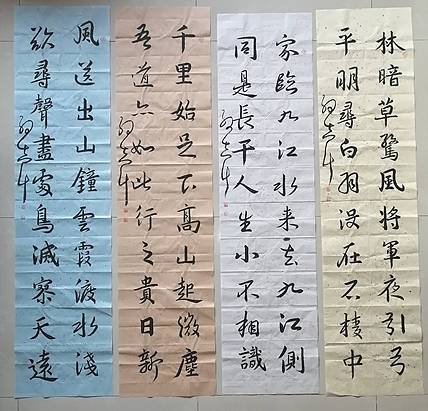 林暗草驚風將軍夜引弓
平明尋白羽没在石棱中
家臨九江水来去九江側
同是長干人生小不相識
千里始足下高山起微塵
吾道亦如此行之貴日新
風送出山鐘雲霞渡水淺
欲尋聲盡處鳥滅寥天遠